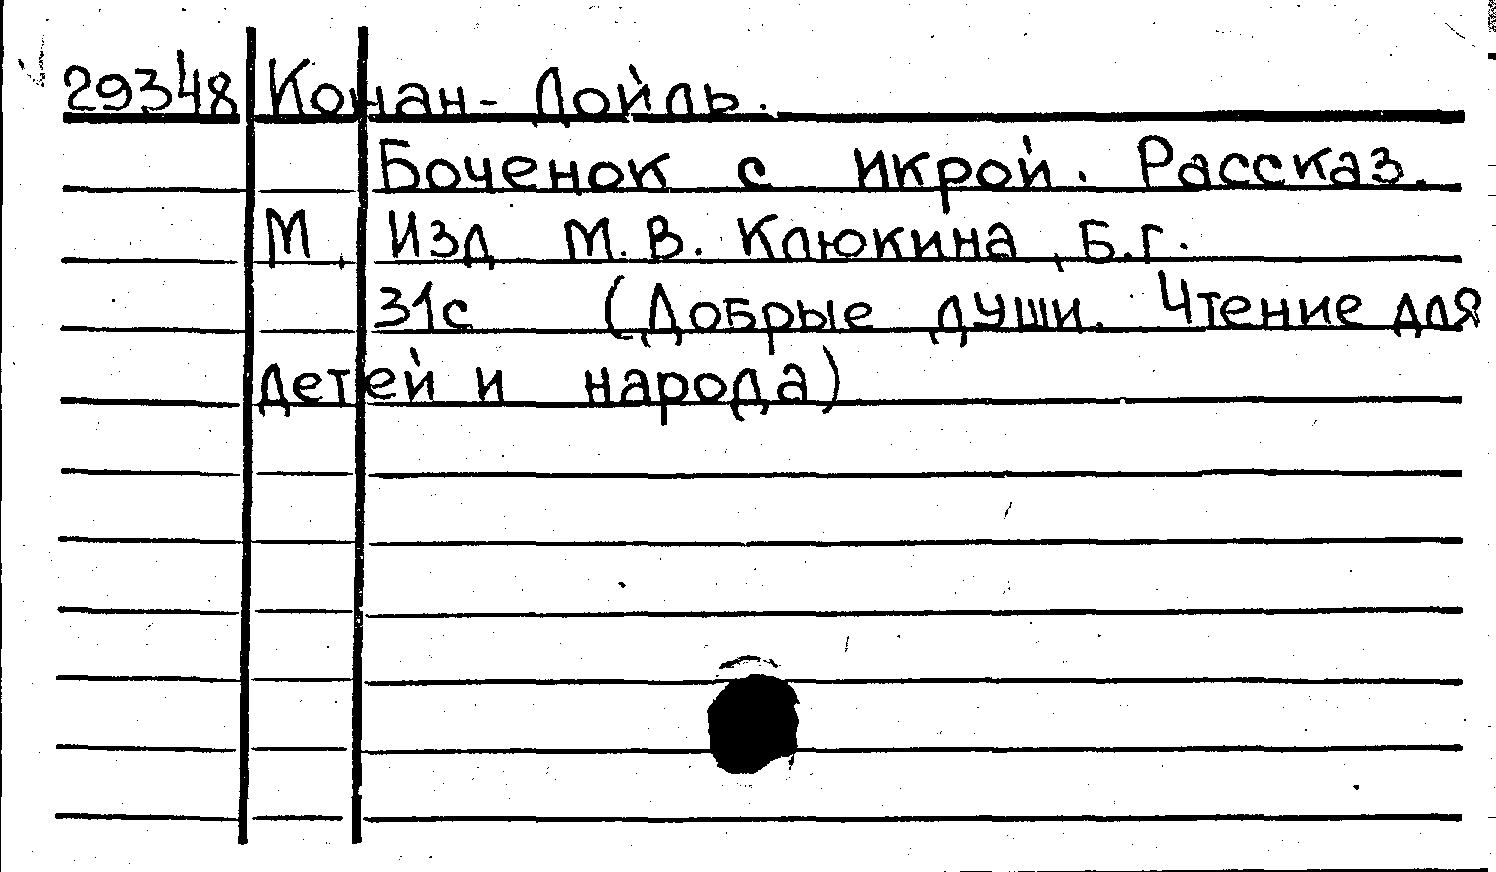 29348 Конан-Дойль.
Боченок с икрой. Рассказ.
М., Изд. М. В. Клюкина, Б.г.
31с (Добрые души. Чтение для
детей и народа)